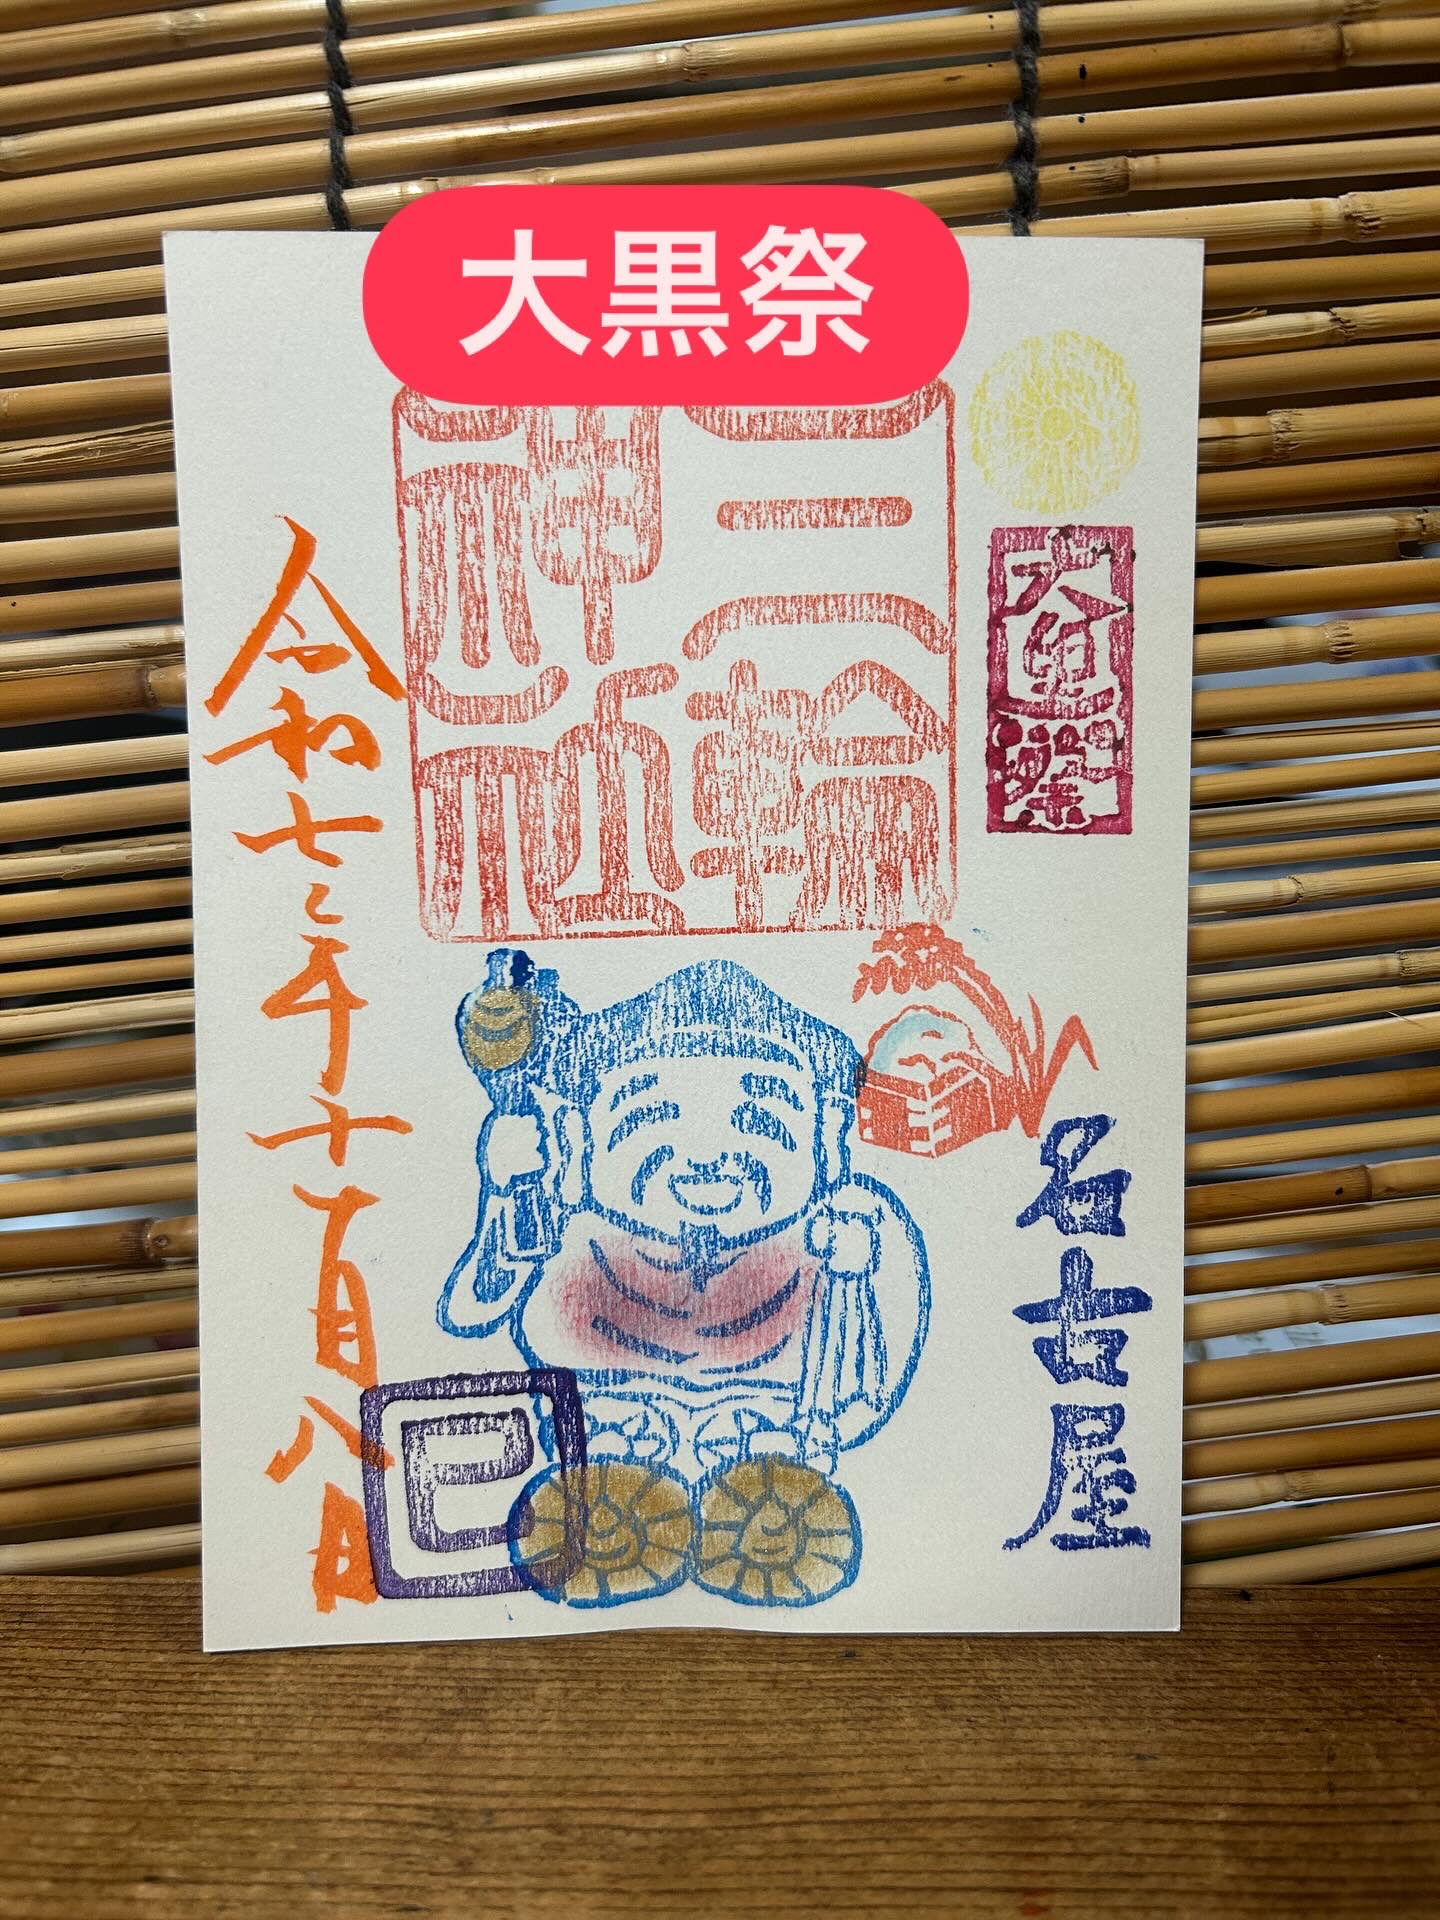 大黒祭
三輪
神社
大黒祭
名古屋
巳
令和七年十一月八日